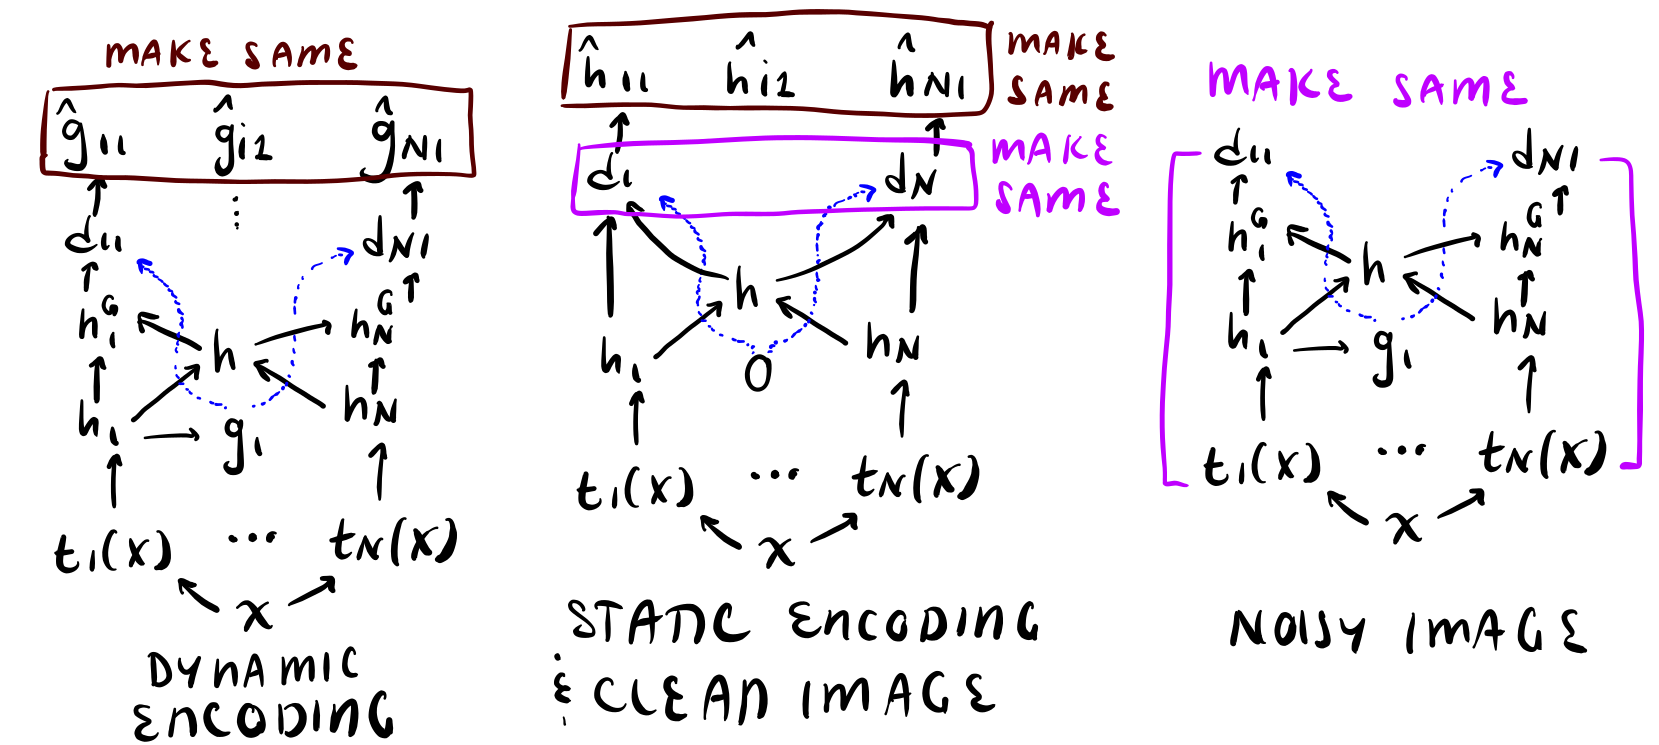 MAKE SAME
ĝ11 ĝi2 ĝN1
⋮
d11 dN1
h1^G hN^G
h
h1 hN
g1
t1(x) ... tN(x)
x
DYNAMIC
ENCODING
ĥ11 ĥi2 ĥN1
MAKE
SAME
d1 dN
MAKE
SAME
h
h1 hN
0
t1(x) ... tN(x)
x
STATIC ENCODING
& CLEAN IMAGE
MAKE SAME
d11 dN1
h1^G hN^G
h
h1 hN
g1
t1(x) ... tN(x)
x
NOISY IMAGE